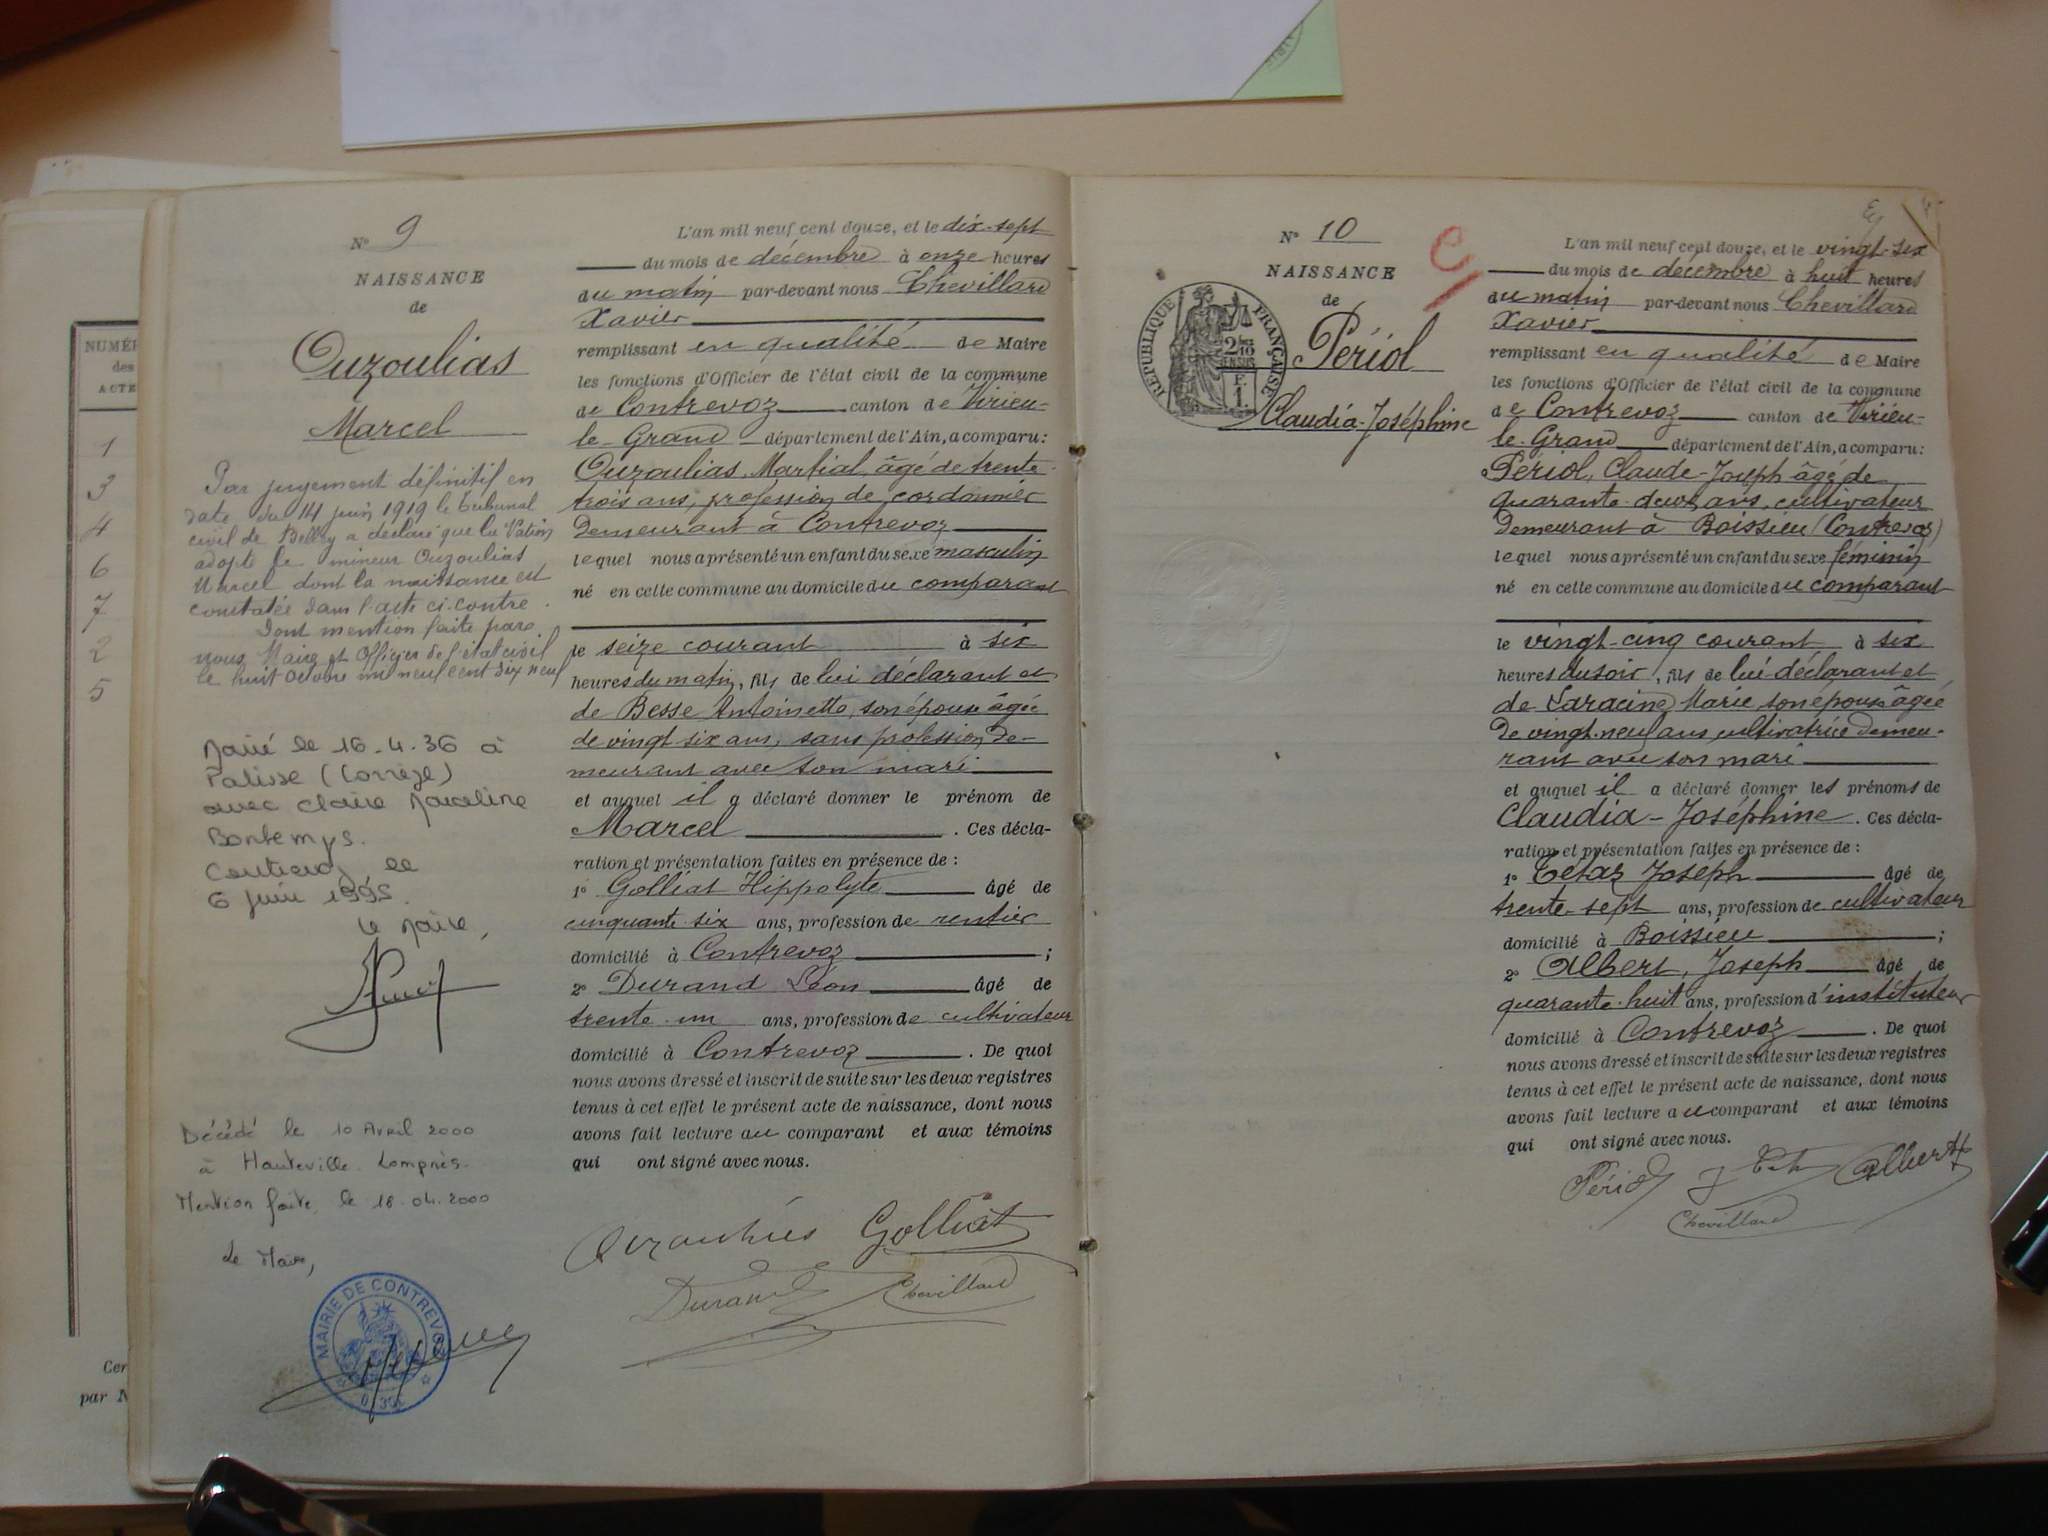 NUMÉR
des
ACTE
1
3
4
6
7
2
5
Cer
par N
N° 9
NAISSANCE
de
Ouzoulias
Marcel
Par jugement définitif en
date du 14 juin 1919 le Tribunal
civil de Belley a déclaré que la Nation
adopte le mineur Ouzoulias
Marcel dont la naissance est
constatée dans l'acte ci-contre.
Dont mention faite par
nous Maire et Officier de l'état civil
le huit octobre mil neuf cent dix neuf
Marié le 16-4-36 à
Palisse (Corrèze)
avec Claire Marceline
Bontemps.
Contrevoz le
6 juin 1995.
Le Maire,
Décédé le 10 Avril 2000
à Hauteville-Lompnès.
Mention faite, le 18-04-2000
Le Maire,
MAIRIE DE CONTREVOZ
L'an mil neuf cent douze, et le dix-sept
du mois de décembre à onze heures
du matin par-devant nous Chevillard
Xavier
remplissant en qualité de Maire
les fonctions d'Officier de l'état civil de la commune
de Contrevoz canton de Virieu-
le-Grand département de l'Ain, a comparu:
Ouzoulias Martial âgé de trente-
trois ans, profession de cordonnier
demeurant à Contrevoz
lequel nous a présenté un enfant du sexe masculin
né en cette commune au domicile du comparant
le seize courant à six
heures du matin, fils de lui déclarant et
de Besse Antoinette, son épouse âgée
de vingt-six ans, sans profession de-
meurant avec son mari
et auquel il a déclaré donner le prénom de
Marcel . Ces décla-
ration et présentation faites en présence de :
1° Golliat Hippolyte âgé de
cinquante-six ans, profession de rentier
domicilié à Contrevoz ;
2° Durand Léon âgé de
trente-un ans, profession de cultivateur
domicilié à Contrevoz . De quoi
nous avons dressé et inscrit de suite sur les deux registres
tenus à cet effet le présent acte de naissance, dont nous
avons fait lecture au comparant et aux témoins
qui ont signé avec nous.
Ouzoulias Golliat
Durand Chevillard
N° 10
NAISSANCE
de
Périol
Claudia-Joséphine
RÉPUBLIQUE FRANÇAISE
L'an mil neuf cent douze, et le vingt-six
du mois de décembre à huit heures
du matin par-devant nous Chevillard
Xavier
remplissant en qualité de Maire
les fonctions d'Officier de l'état civil de la commune
de Contrevoz canton de Virieu-
le-Grand département de l'Ain, a comparu:
Périol, Claude-Joseph âgé de
quarante-deux ans, cultivateur
demeurant à Boissieu (Contrevoz)
lequel nous a présenté un enfant du sexe féminin
né en cette commune au domicile du comparant
le vingt-cinq courant à six
heures du soir, fils de lui déclarant et
de Laracine Marie son épouse âgée
de vingt-neuf ans cultivatrice demeu-
rant avec son mari
et auquel il a déclaré donner les prénoms de
Claudia-Joséphine . Ces décla-
ration et présentation faites en présence de :
1° Tétaz Joseph âgé de
trente-sept ans, profession de cultivateur
domicilié à Boissieu ;
2° Albert, Joseph âgé de
quarante-huit ans, profession d'instituteur
domicilié à Contrevoz . De quoi
nous avons dressé et inscrit de suite sur les deux registres
tenus à cet effet le présent acte de naissance, dont nous
avons fait lecture au comparant et aux témoins
qui ont signé avec nous.
Périol Albert
Chevillard